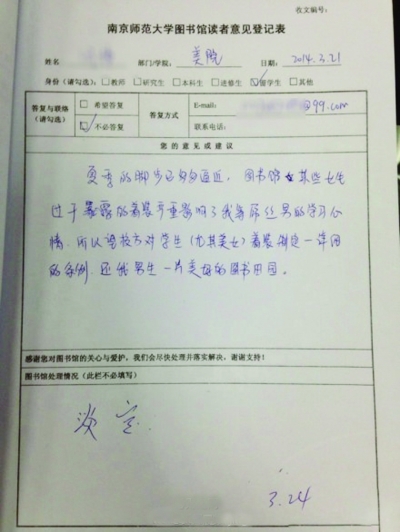 收文编号：
南京师范大学图书馆读者意见登记表
姓名 部门/学院： 美院 日期： 2014.3.21
身份（请勾选） □教师 □研究生 □本科生 □进修生 ☑留学生 □其他
答复与联络（请勾选） □ 希望答复 ☑ 不必答复 答复方式 E-mail: @qq.com 联系电话：
您的意见或建议
夏季的脚步已匆匆逼近，图书馆某些女生
过于暴露的着装严重影响了我等屌丝男的学习心
情，所以望校方对学生（尤其美女）着装制定一详细
的条例，还我男生一片美好的图书田园。
感谢您对图书馆的关心与爱护，我们会尽快处理并落实解决，谢谢支持！
图书馆处理情况（此栏不必填写）
淡定.
3.24